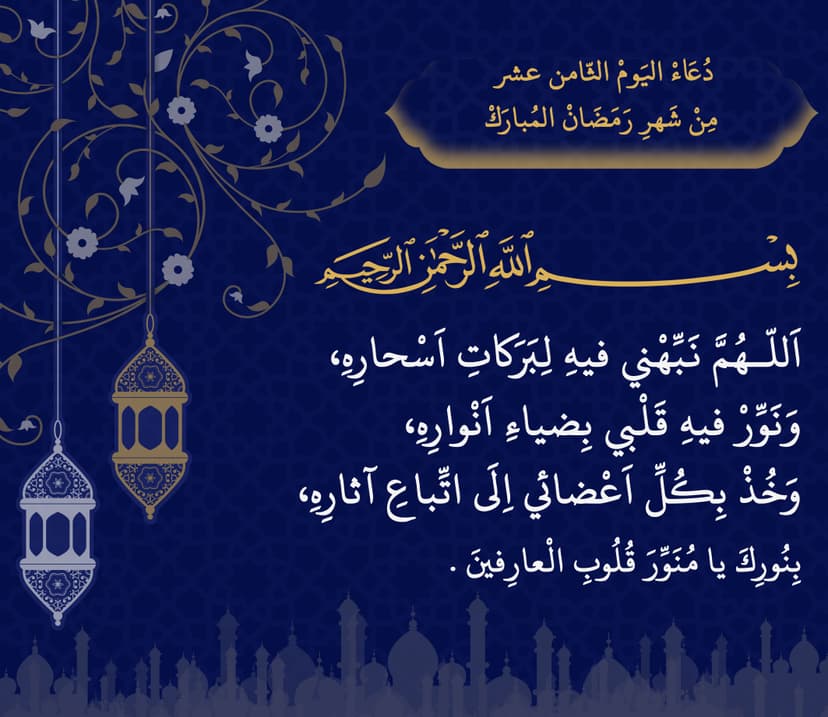 دُعَاءْ اليَومْ الثّامن عشر
مِنْ شَهرِ رَمَضَانْ المُبارَكْ
بِسْمِ اللَّهِ الرَّحْمَٰنِ الرَّحِيمِ
اَللّـهُمَّ نَبِّهْني فيهِ لِبَرَكاتِ اَسْحارِهِ،
وَنَوِّرْ فيهِ قَلْبي بِضياءِ اَنْوارِهِ،
وَخُذْ بِكُلِّ اَعْضائي اِلَى اتِّباعِ آثارِهِ،
بِنُورِكَ يا مُنَوِّرَ قُلُوبِ الْعارِفينَ .